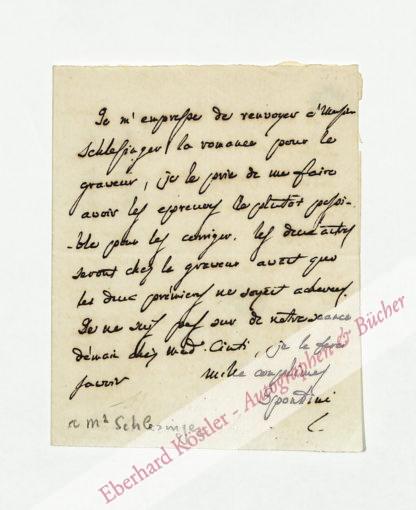 Je m'empresse de renvoyer à Monsr
Schlesinger la romance pour le
graveur, je le prie de me faire
avoir les epreuves le plutôt possi-
-ble pour les corriger. les deux autres
seront chez le graveur avant que
les deux premieres ne soyent achevées.
Je ne suis pas sur de notre seance
démain chez Mad. Cinti, je le ferai
savoir mille complimens
Spontini
a Md Schlesinger
Eberhard Köstler - Autographen & Bücher